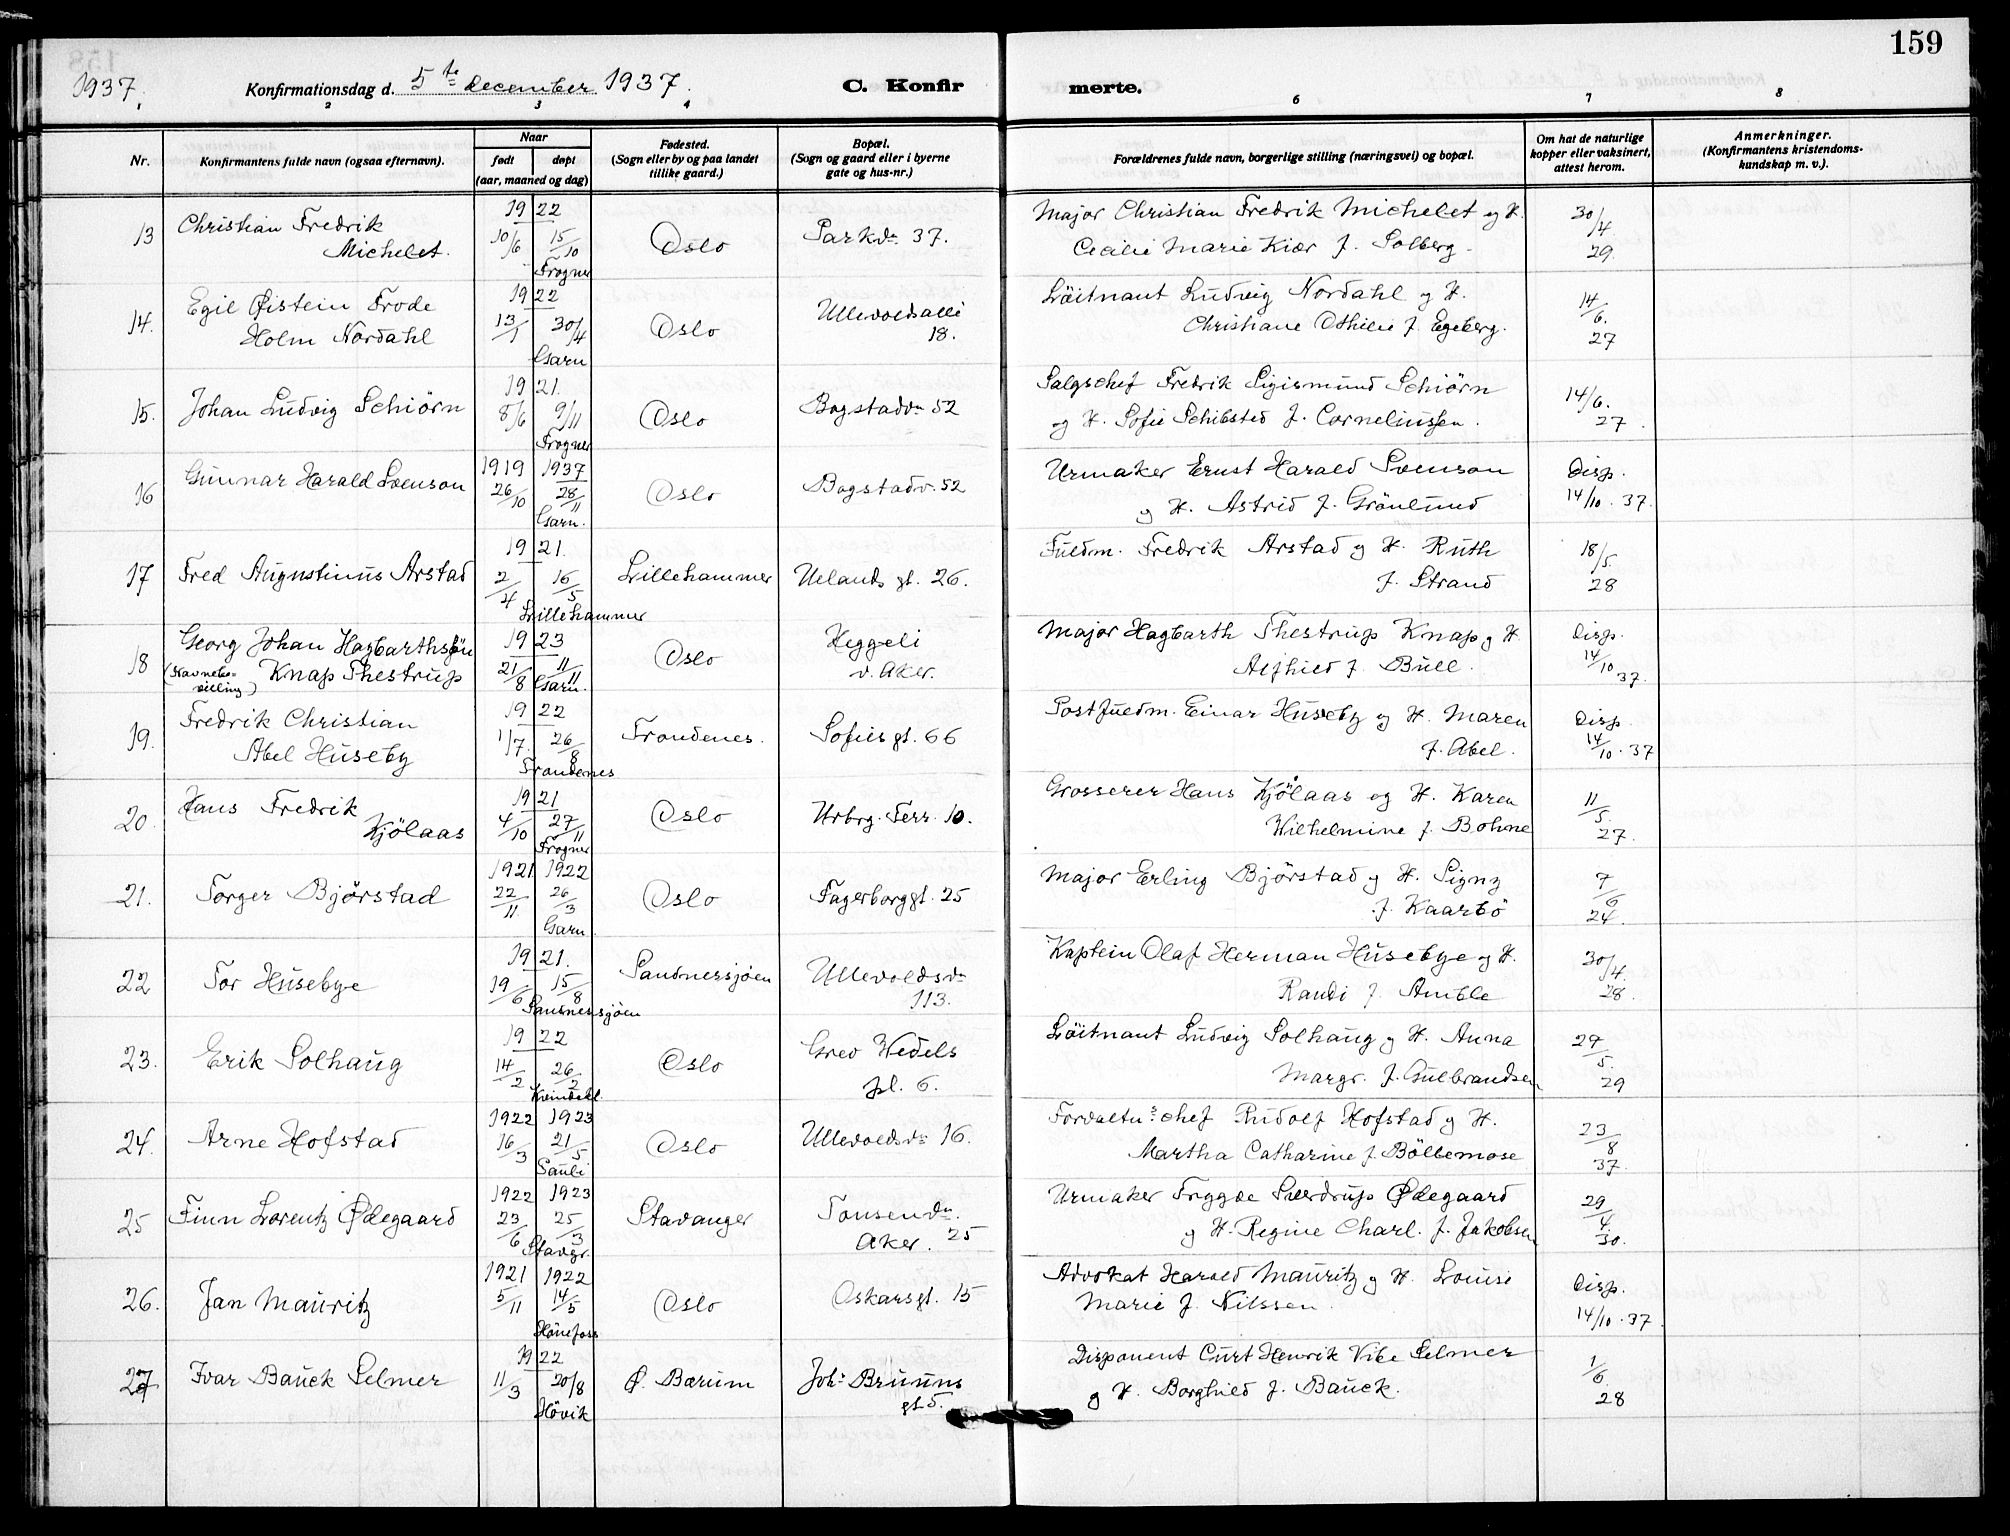 159
1937.
Konfirmationsdag d. 5te december 1937.
C. Konfirmerte.
1 2 3 4 6 7 8
Nr.
Konfirmantens fulde navn (ogsaa efternavn).
Naar
født
døpt
(aar, maaned og dag)
Fødested.
(Sogn eller by og paa landet
tillike gaard.)
Bopæl.
(Sogn og gaard eller i byerne
gate og hus-nr.)
Forældrenes fulde navn, borgerlige stilling (næringsvei) og bopæl.
Om hat de naturlige
kopper eller vaksinert,
attest herom.
Anmerkninger.
(Konfirmantens kristendoms-
kundskap m. v.).
13 Christian Fredrik
Michelet.
1922
10/6 15/10
Frogner
Oslo
Parkvn 37.
Major Christian Fredrik Michelet og H.
Cecilie Marie Kiær f. Solberg.
30/4
29.
14. Egil Øistein Frode
Holm Nordahl
1922
13/1 30/4
Garn
Oslo
Ullevoldsallé
18.
Löitnant Ludvig Nordahl og H.
Christiane Othilie f. Egeberg.
14/6.
27
15. Johan Ludvig Schiörn
1921.
8/6 9/11
Frogner
Oslo
Bogstadvn 52
Salgschef Fredrik Sigismund Schiörn
og H. Sofie Schibsted f. Corneliussen.
14/6.
27.
16 Gunnar Harald Svenson
1919 1937
26/10 28/11
Garn.
Oslo
Bogstadv. 52
Urmaker Ernst Harald Svenson
og H. Astrid f. Grönlund
Disp.
14/10. 37.
17 Fred Augustinus Arstad
1921.
2/4 16/5
Lillehammer
Lillehammer
Uelands gt. 26.
Fuldm. Fredrik Arstad og H. Ruth
f. Strand
18/5.
28
18 Georg Johan Hagbarthsön
(Navnebevilling) Knap Thestrup
1923
21/8 11/11
Garn.
Oslo
Heggeli
v. Aker.
Major Hagbarth Thestrup Knap og H.
Alfhild f. Bull.
Disp.
14/10
37.
19. Fredrik Christian
Abel Huseby
1922
1/7. 26/8
Trondenes
Trondenes.
Sofies gt. 66
Postfuldm. Einar Huseby og H. Maren
f. Abel.
Disp.
14/10. 37
20. Hans Fredrik
Kjölaas
1921
4/10 27/11
Frogner
Oslo
Urbrg. Terr. 10.
Grosserer Hans Kjölaas og H. Karen
Wilhelmine f. Bohne
11/5.
27.
21. Torger Björstad
1921 1922
22/11. 26/3
Garn
Oslo
Fagerborggt. 25
Major Erling Björstad og H. Signy
f. Kaarbö
7/6
24.
22 Tor Husebye
1921.
19/6 15/8
Sandnessjöen
Sandnessjöen
Ullevoldsvn
113.
Kaptein Olaf Herman Husebye og H.
Randi f. Amble
30/4.
28.
23. Erik Solhaug
1922
14/2 26/2
Oslo
Grev Wedels
pl. 6.
Löitnant Ludvig Solhaug og H. Anna
Margr. f. Gulbrandsen
29/5.
29
24. Arne Hofstad
1922 1923
16/3 21/5
Pauli
Oslo
Ullevoldsvn 16.
Forvaltns chef Rudolf Hofstad og H.
Martha Catharine f. Böllemose
23/8
37.
25 Finn Lorentz Ødegaard
1922 1923
23/6 25/3
Stavgr.
Stavanger
Tonsenvn.
Aker. 25
Urmaker Tryggve Sverdrup Ødegaard
og H. Regine Charl. f. Jakobsen
29/4.
30.
26. Jan Mauritz
1921 1922
5/11 14/5
Hönefoss
Oslo
Oskarsgt. 15
Advokat Harald Mauritz og H. Louise
Marie f. Nilssen.
Disp.
14/10. 37.
27 Ivar Bauck Selmer
1922
11/3 20/8
Hövik
Ø. Bærum
Johs Bruuns
gt 5.
Disponent Curt Henrik Vibe Selmer
og H. Borghild f. Bauck.
1/6.
28